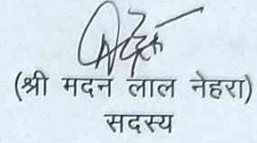 (श्री मदन लाल नेहरा)
सदस्य